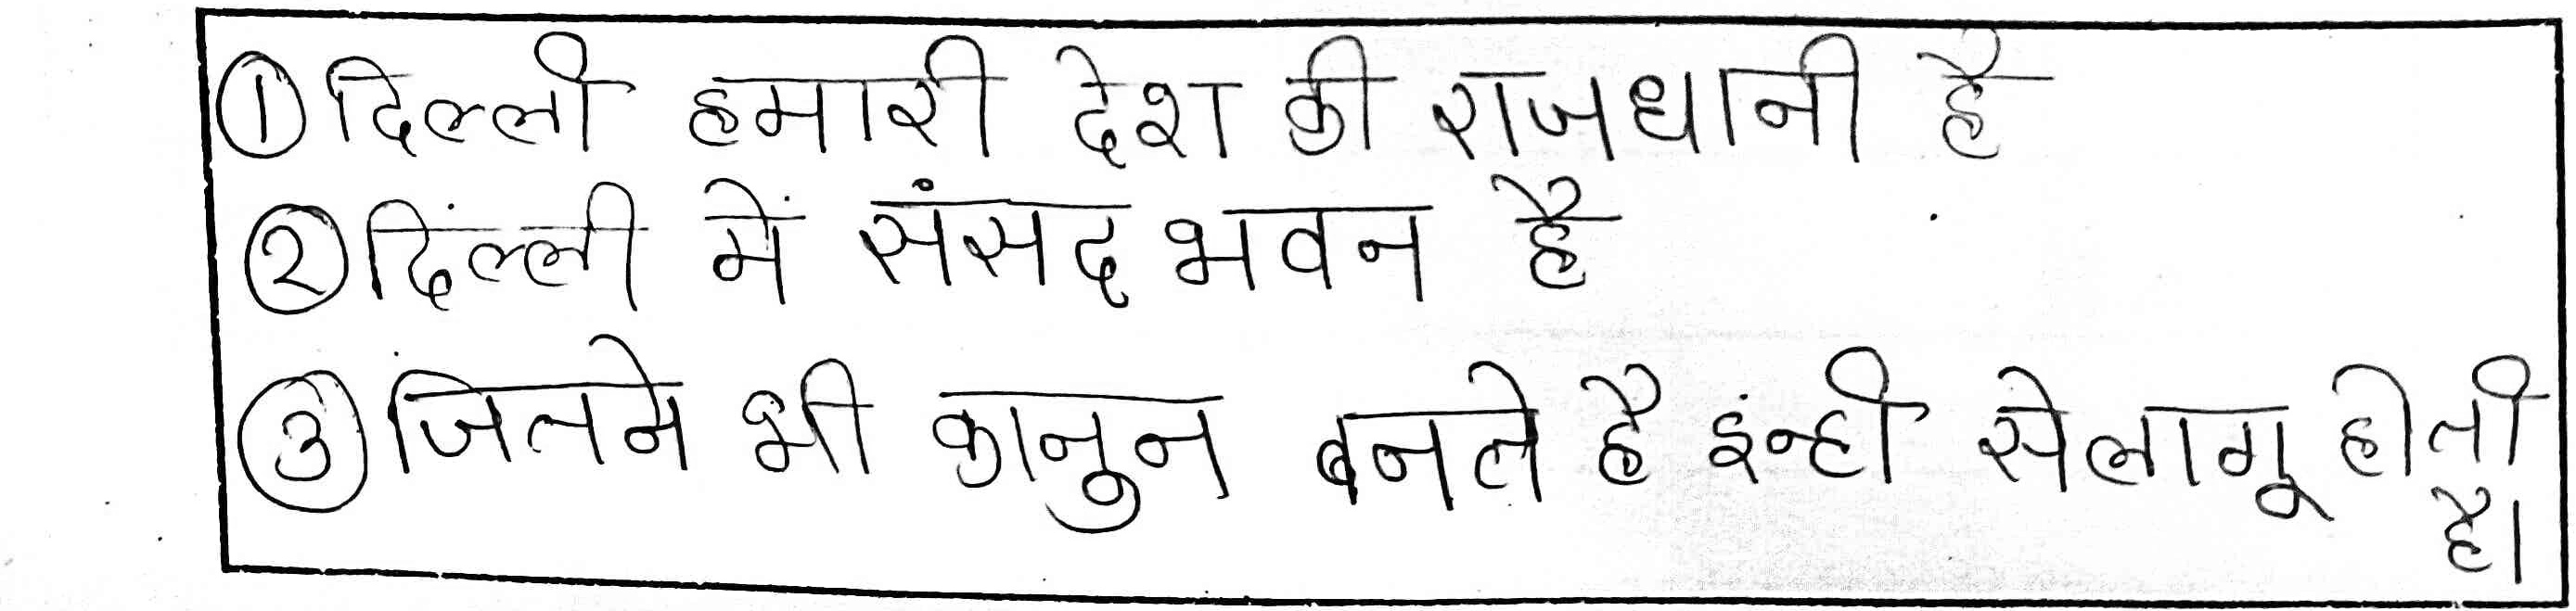 ① दिल्ली हमारी देश की राजधानी है
② दिल्ली में संसद भवन है
③ जितने भी कानुन बनते है इंन्ही से लागू होती
है।